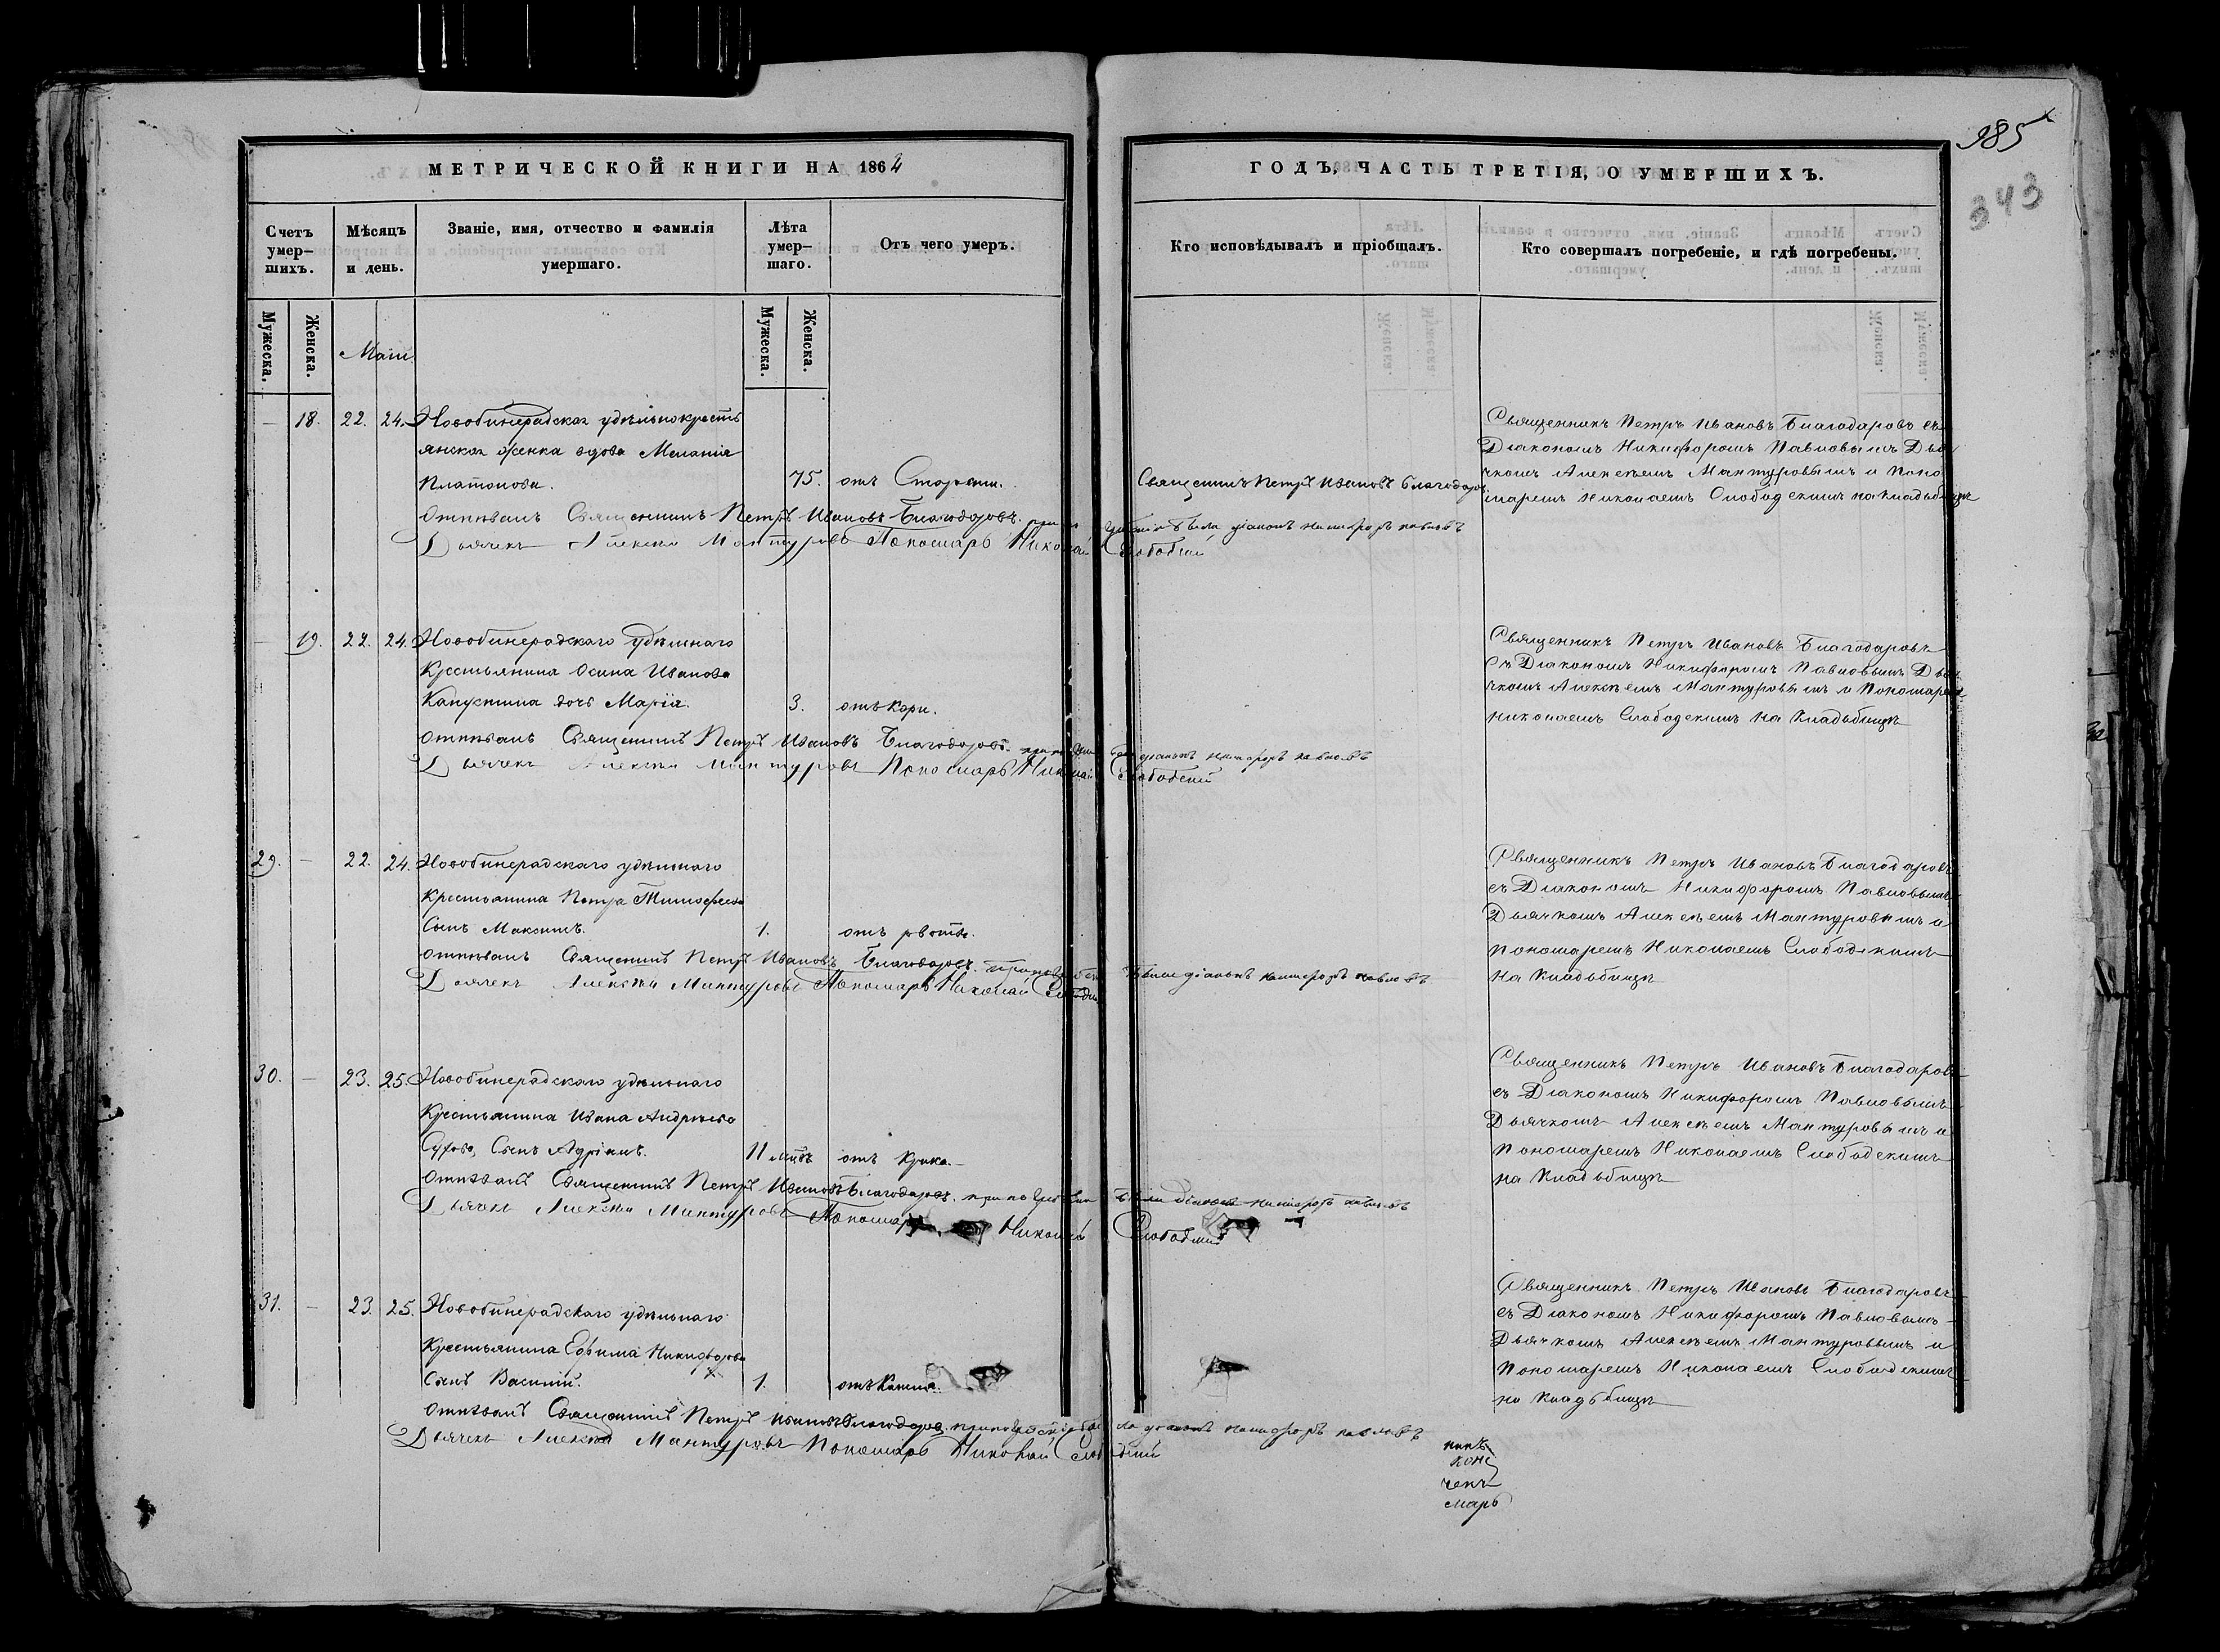 385
343
МЕТРИЧЕСКОЙ КНИГИ НА 1864
ГОДЪ, ЧАСТЬ ТРЕТІЯ, О УМЕРШИХЪ.
Счетъ умер-шихъ.
Мѣсяцъ и день.
Званіе, имя, отчество и фамилія умершаго.
Лѣта умер-шаго.
Отъ чего умеръ.
Кто исповѣдывалъ и пріобщалъ.
Кто совершалъ погребеніе, и гдѣ погребены.
Мужеска.
Женска.
Мужеска.
Женска.
— 18. 22. 24. Новобинерадская удѣльнокресть
янская женка вдова Меланія
Платонова. 75. отъ Старости.
Священникъ Петръ Ивановъ Благодаровъ
Священникъ Петръ Ивановъ Благодаровъ съ
Діакономъ Никифоромъ Павловымъ Дья
чкомъ Алексѣемъ Мантуровымъ и Поно
маремъ Николаемъ Слободскимъ на кладьбищѣ
Отпѣвалъ Священникъ Петръ Ивановъ Благодаровъ. діаконъ Никифоръ Павловъ
Дьячекъ Алексѣй Мантуровъ Пономарь Николай Слободскій
— 19. 22. 24. Новобинерадскаго удѣльнаго
Крестьянина Осипа Иванова
Капустина дочь Марія. 3. отъ кори.
Священникъ Петръ Ивановъ Благодаровъ
съ Діакономъ Никифоромъ Павловымъ Дья
чкомъ Алексѣемъ Мантуровымъ и Пономаремъ
Николаемъ Слободскимъ на Кладьбищѣ
Отпѣвалъ Священникъ Петръ Ивановъ Благодаровъ. діаконъ Никифоръ Павловъ
Дьячекъ Алексѣй Мантуровъ Пономарь Николай Слободскій
29. — 22. 24. Новобинерадскаго удѣльнаго
Крестьянина Петра Тимофеева
Сынъ Максимъ. 1. отъ рвоты.
Священникъ Петръ Ивановъ Благодаровъ
съ Діакономъ Никифоромъ Павловымъ
Дьячкомъ Алексѣемъ Мантуровымъ и
пономаремъ Николаемъ Слободскимъ
на Кладьбищѣ
Отпѣвалъ Священникъ Петръ Ивановъ Благодаровъ. діаконъ Никифоръ Павловъ
Дьячекъ Алексѣй Мантуровъ Пономарь Николай Слободскій
30. — 23. 25. Новобинерадскаго удѣльнаго
Крестьянина Ивана Андрѣева
Сухова, Сынъ Адріанъ. отъ крика.
Священникъ Петръ Ивановъ Благодаровъ
съ Діакономъ Никифоромъ Павловымъ
Дьячкомъ Алексѣемъ Мантуровымъ и
Пономаремъ Николаемъ Слободскимъ
на Кладьбищѣ
Отпѣвалъ Священникъ Петръ Ивановъ Благодаровъ. діаконъ Никифоръ Павловъ
Дьячекъ Алексѣй Мантуровъ Пономарь Николай Слободскій
31. — 23. 25. Новобинерадскаго удѣльнаго
Крестьянина Ефима Никифорова
Сынъ Василій. 1. отъ Кашля.
Священникъ Петръ Ивановъ Благодаровъ
съ Діакономъ Никифоромъ Павловымъ
Дьячкомъ Алексѣемъ Мантуровымъ и
Пономаремъ Николаемъ Слободскимъ
на Кладьбищѣ
Отпѣвалъ Священникъ Петръ Ивановъ Благодаровъ. діаконъ Никифоръ Павловъ
Дьячекъ Алексѣй Мантуровъ Пономарь Николай Слободскій
никъ
конъ
чекъ
марь